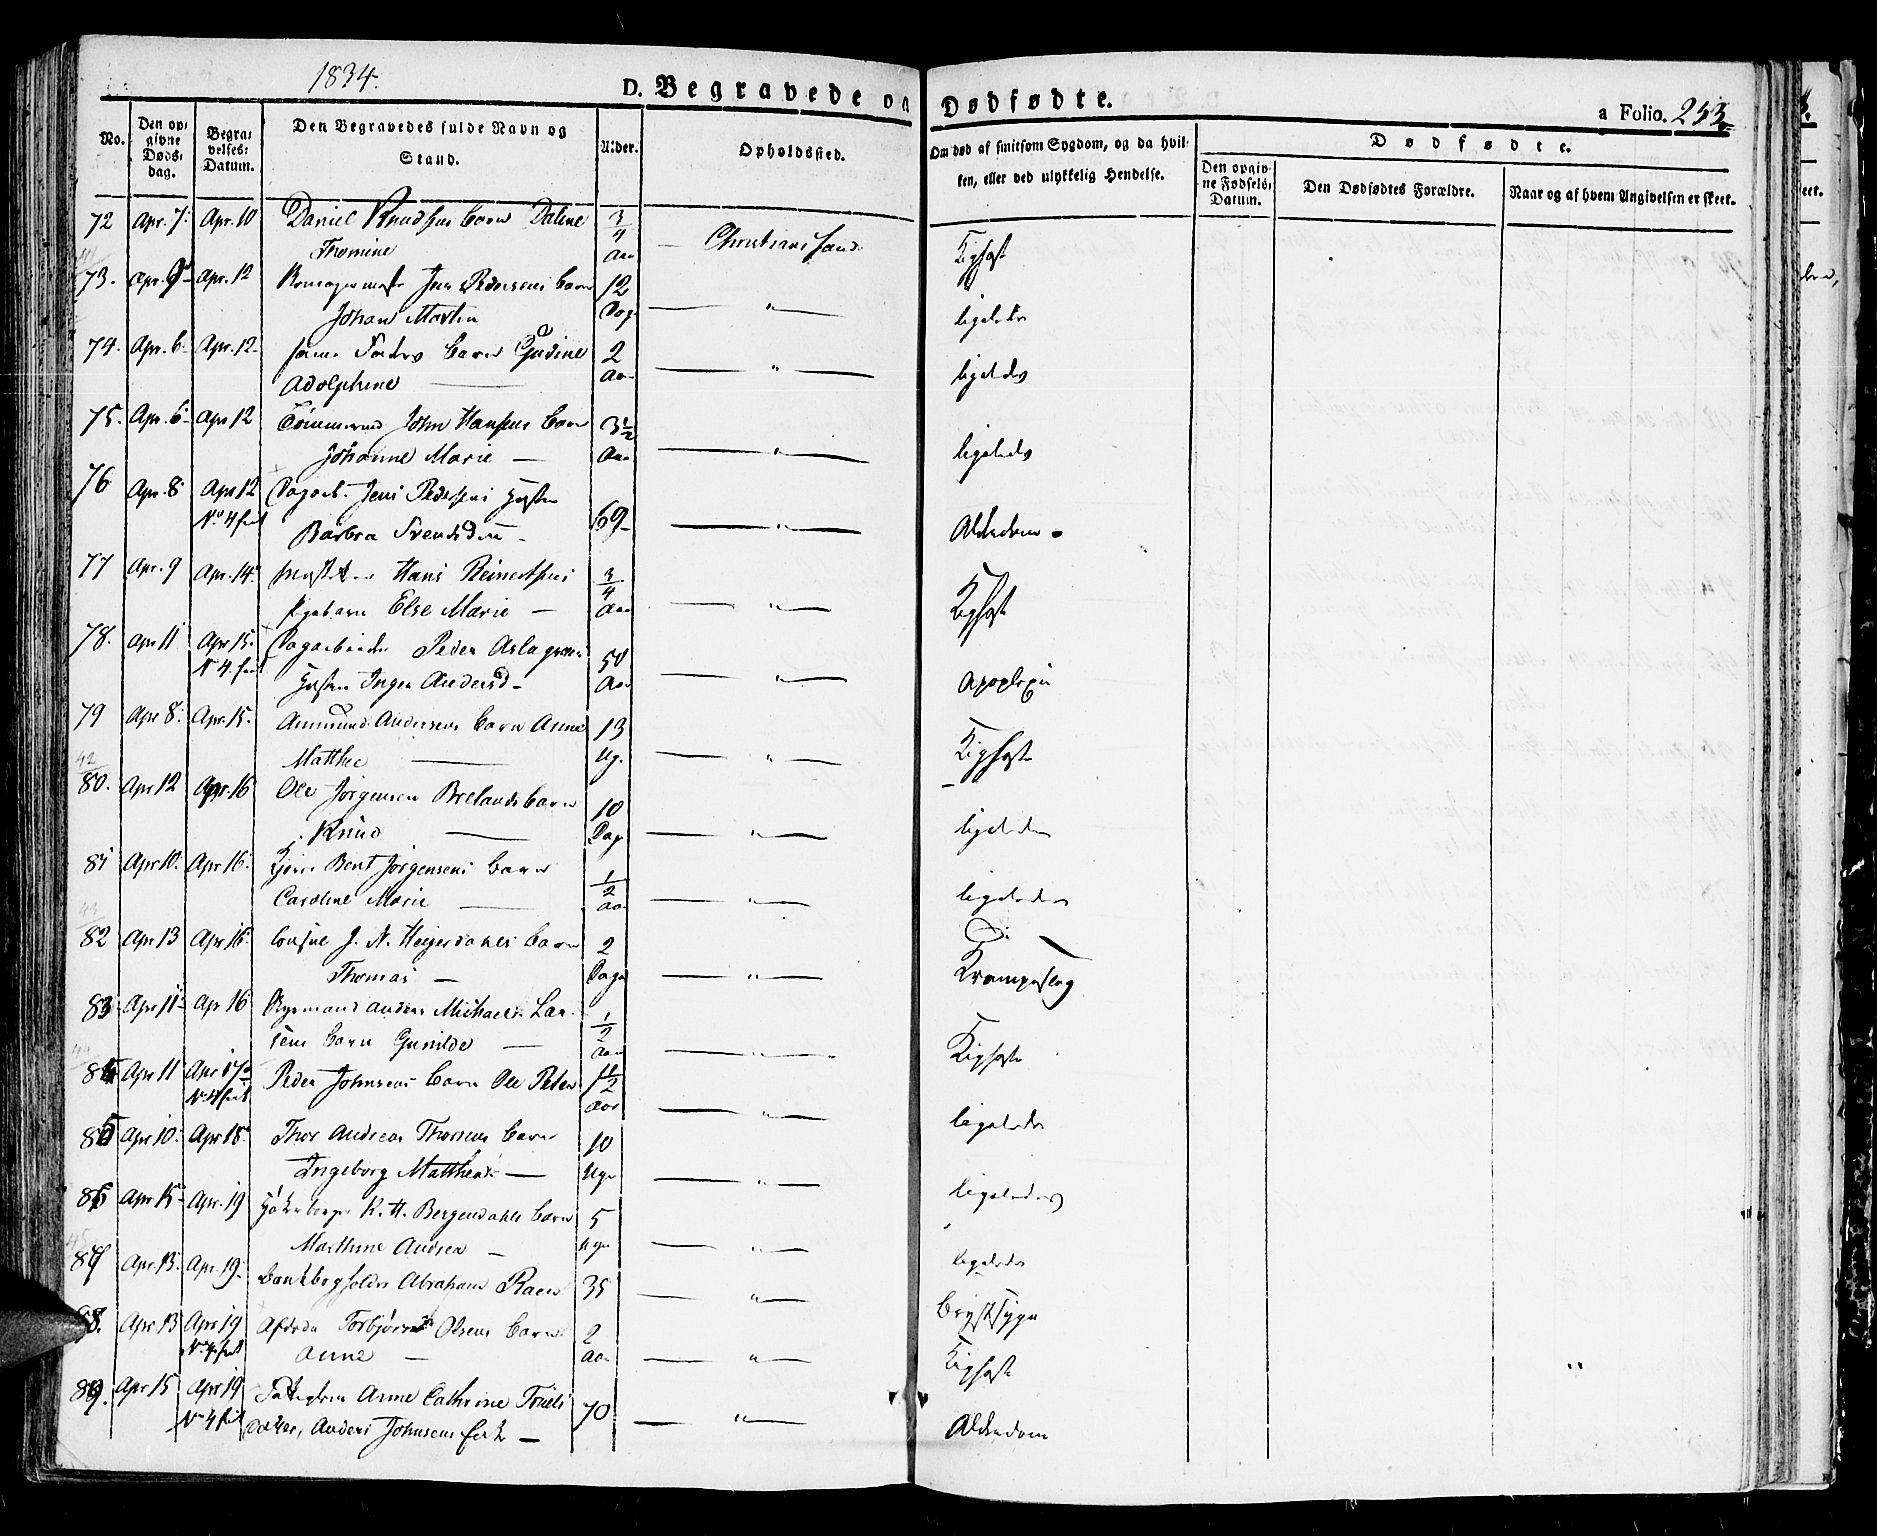 1834.
D. Begravede og Dødfødte.
a Folio. 253
No. Den opgivne Dødsdag. Begravelses-Datum. Den Begravedes fulde Navn og Stand. Alder. Opholdssted. Om død af smitsom Sygdom, og da hvilken, eller ved ulykkelig Hendelse. Dødfødte. Den opgivne Fødsels-Datum. Den Dødfødtes Forældre. Naar og af hvem Angivelsen er skeet.
72 Apr. 7. Apr. 10 Daniel Knudsens Barn Daline 3/4
Thomine Aar Christianssand Kighoste
73. Apr. 9 Apr. 12 Jens Pedersens Barn 12
Johan Martin Dage " ligeledes
74. Apr. 6. Apr. 12. samme Faders Barn Gudine 2
Adolphine Aar " ligeledes
75. Apr. 6. Apr 12 Tømmermd John Hansens Barn 3 1/2
Johanne Marie — Aar " ligeledes
76 Apr. 8 Apr 12 Dagarb. Jens Pedersens Hustru
No 4 frit Barbra Svendsd. 69 " Alderdom.
77 Apr. 9 Apr. 14. Hans Reinertsens 3/4
Pigebarn Else Marie — Aar " Kighoste
78. Apr 11 Apr 15. Dagarbeider Peder Aslagsens 50
No 4 frit Hustru Inger Andersd. Aar " Apoplexie
79 Apr 8. Apr. 15. Aanund Andersens Barn Anne 13
Mathie Ug. " Kighoste
80. Apr 12 Apr 16 Ole Jørgensen Brelands Barn 10
Knud Dage " ligeledes
81 Apr 10. Apr 16. Bent Jørgensens Barn 1/2
Caroline Marie Aar " ligeledes
82 Apr 13 Apr 16. Consul J. N. Heyerdahls Barn 2
Thomas — Dage " Krampeslag
83 Apr 11 Apr 16 Anders Michael Lar-
sens Barn Gunilde — 1/2 Aar " Kighoste
84 Apr 11 Apr 17 Peder Johnsens Barn Ole Peter 1 1/2
No 4 frit Aar " ligeledes
85 Apr 10. Apr 18. Thor Andreas Thorsens Barn 10
Ingeborg Mathea — Uge " ligeledes
86 Apr 15 Apr. 19 R. H. Bergendahls Barn 5
Marthine Andrea — Uge " ligeledes
87 Apr. 13. Apr. 19. Bankbogholder Abraham Roen 35 " Brystsyge
88. Apr 13 Apr 19 Afdøde Torbjørn Olsens Barn 2
No 4 frit Anne — Aar " Kighoste
89. Apr 15 Apr 19 Anne Cathrine Troels
No 4 frit datter, Anders Johnsens — 70 " Alderdom